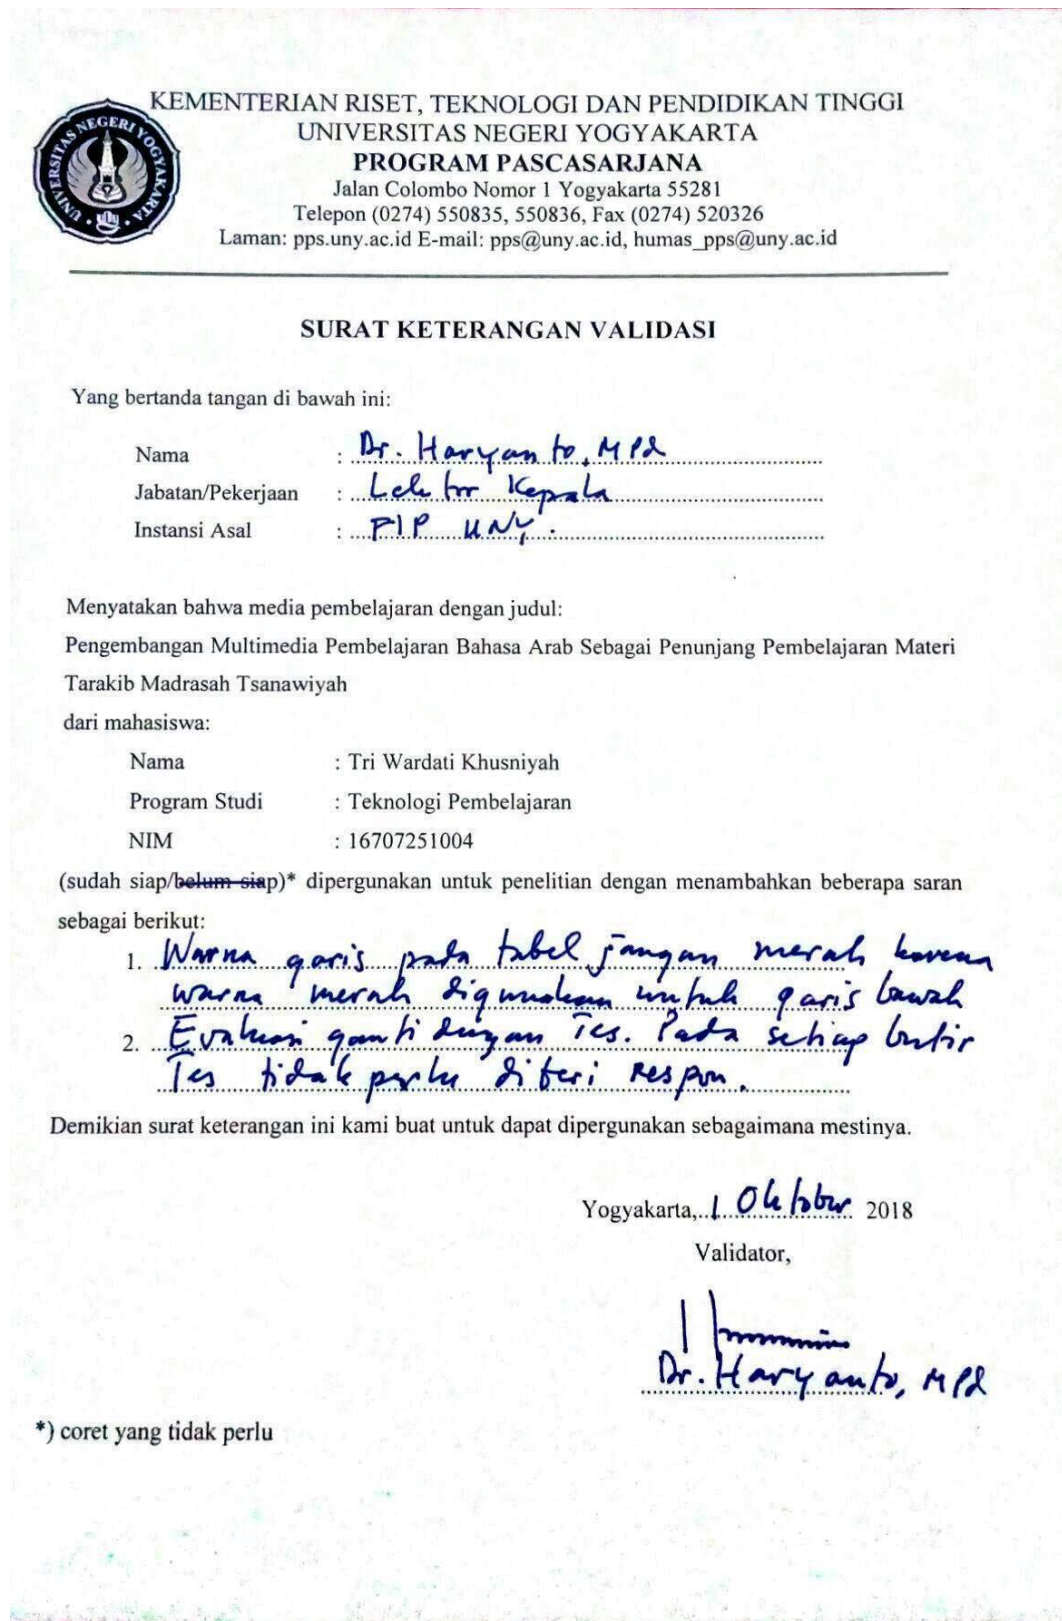 UNIVERSITAS NEGERI YOGYAKARTA
KEMENTERIAN RISET, TEKNOLOGI DAN PENDIDIKAN TINGGI
UNIVERSITAS NEGERI YOGYAKARTA
PROGRAM PASCASARJANA
Jalan Colombo Nomor 1 Yogyakarta 55281
Telepon (0274) 550835, 550836, Fax (0274) 520326
Laman: pps.uny.ac.id E-mail: pps@uny.ac.id, humas_pps@uny.ac.id
SURAT KETERANGAN VALIDASI
Yang bertanda tangan di bawah ini:
Nama : Dr. Haryanto, MPd
Jabatan/Pekerjaan : Lektor Kepala
Instansi Asal : FIP UNY.
Menyatakan bahwa media pembelajaran dengan judul:
Pengembangan Multimedia Pembelajaran Bahasa Arab Sebagai Penunjang Pembelajaran Materi
Tarakib Madrasah Tsanawiyah
dari mahasiswa:
Nama : Tri Wardati Khusniyah
Program Studi : Teknologi Pembelajaran
NIM : 16707251004
(sudah siap/belum siap)* dipergunakan untuk penelitian dengan menambahkan beberapa saran
sebagai berikut:
1. Warna garis pada tabel jangan merah karena
warna merah digunakan untuk garis bawah
2. Evaluasi ganti dengan Tes. Pada setiap butir
Tes tidak perlu diberi Respon.
Demikian surat keterangan ini kami buat untuk dapat dipergunakan sebagaimana mestinya.
Yogyakarta, 1 Oktober 2018
Validator,
Dr. Haryanto, MPd
*) coret yang tidak perlu